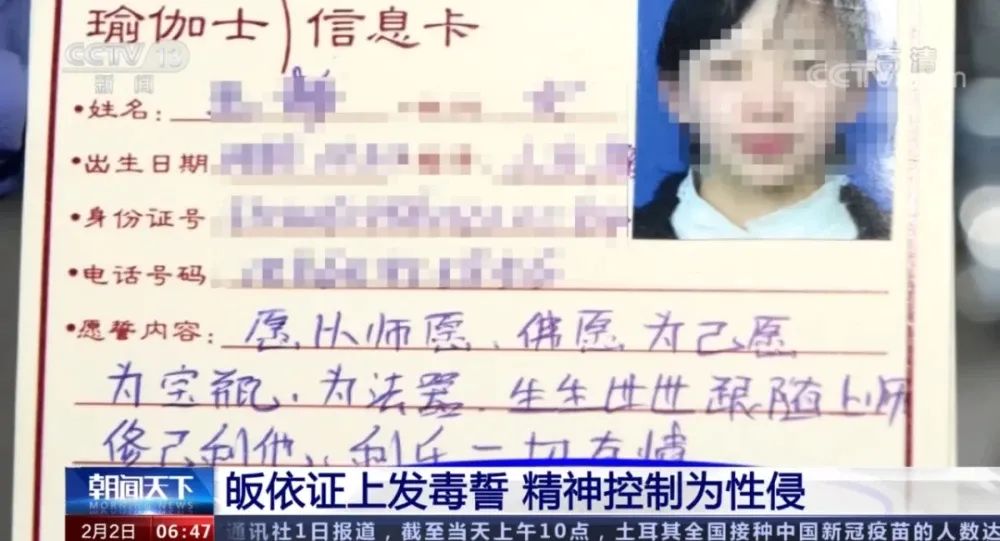 CCTV 13
新闻
高清
CCTV.com
瑜伽士 信息卡
•姓名:
•出生日期
•身份证号
•电话号码
•愿誓内容: 愿以师愿、佛愿为己愿
为宝瓶、为法器、生生世世跟随上师
修己利他、利乐一切有情
朝闻天下
MORNING NEWS
皈依证上发毒誓 精神控制为性侵
2月2日 06:47 通讯社1日报道，截至当天上午10点，土耳其全国接种中国新冠疫苗的人数达